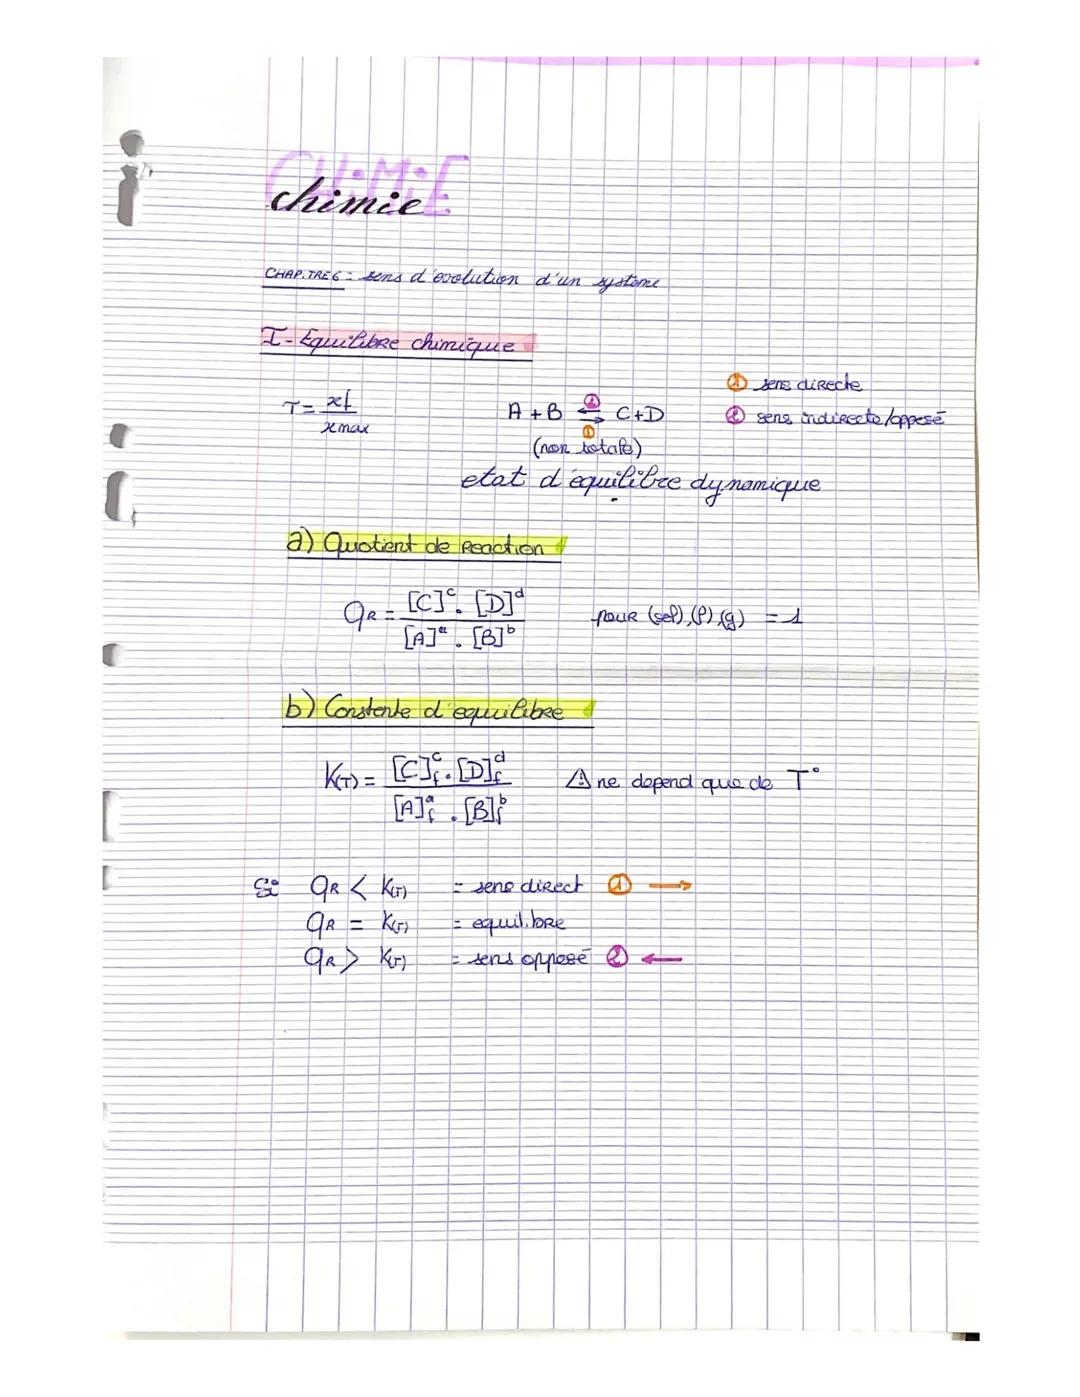 CHiMiE
chimie
CHAPiTRE 6 : sens d'evolution d'un systeme
I- Equilibre chimique
① sens directe
T = xf / xmax
A + B ⇄ C+D
② ①
② sens indirecte/opposé
(non totale)
etat d'équilibre dynamique
a) Quotient de Reaction
QR = [C]ᶜ . [D]ᵈ / [A]ᵃ . [B]ᵇ
pour (sol), (l), (g) = 1
b) Constente d'equilibre
K(T) = [C]ᶜf . [D]ᵈf / [A]ᵃf . [B]ᵇf
⚠ ne depend que de T°
Si QR < K(T) = sens direct ① →
QR = K(T) = equilibre
QR > K(T) = sens opposé ② ←